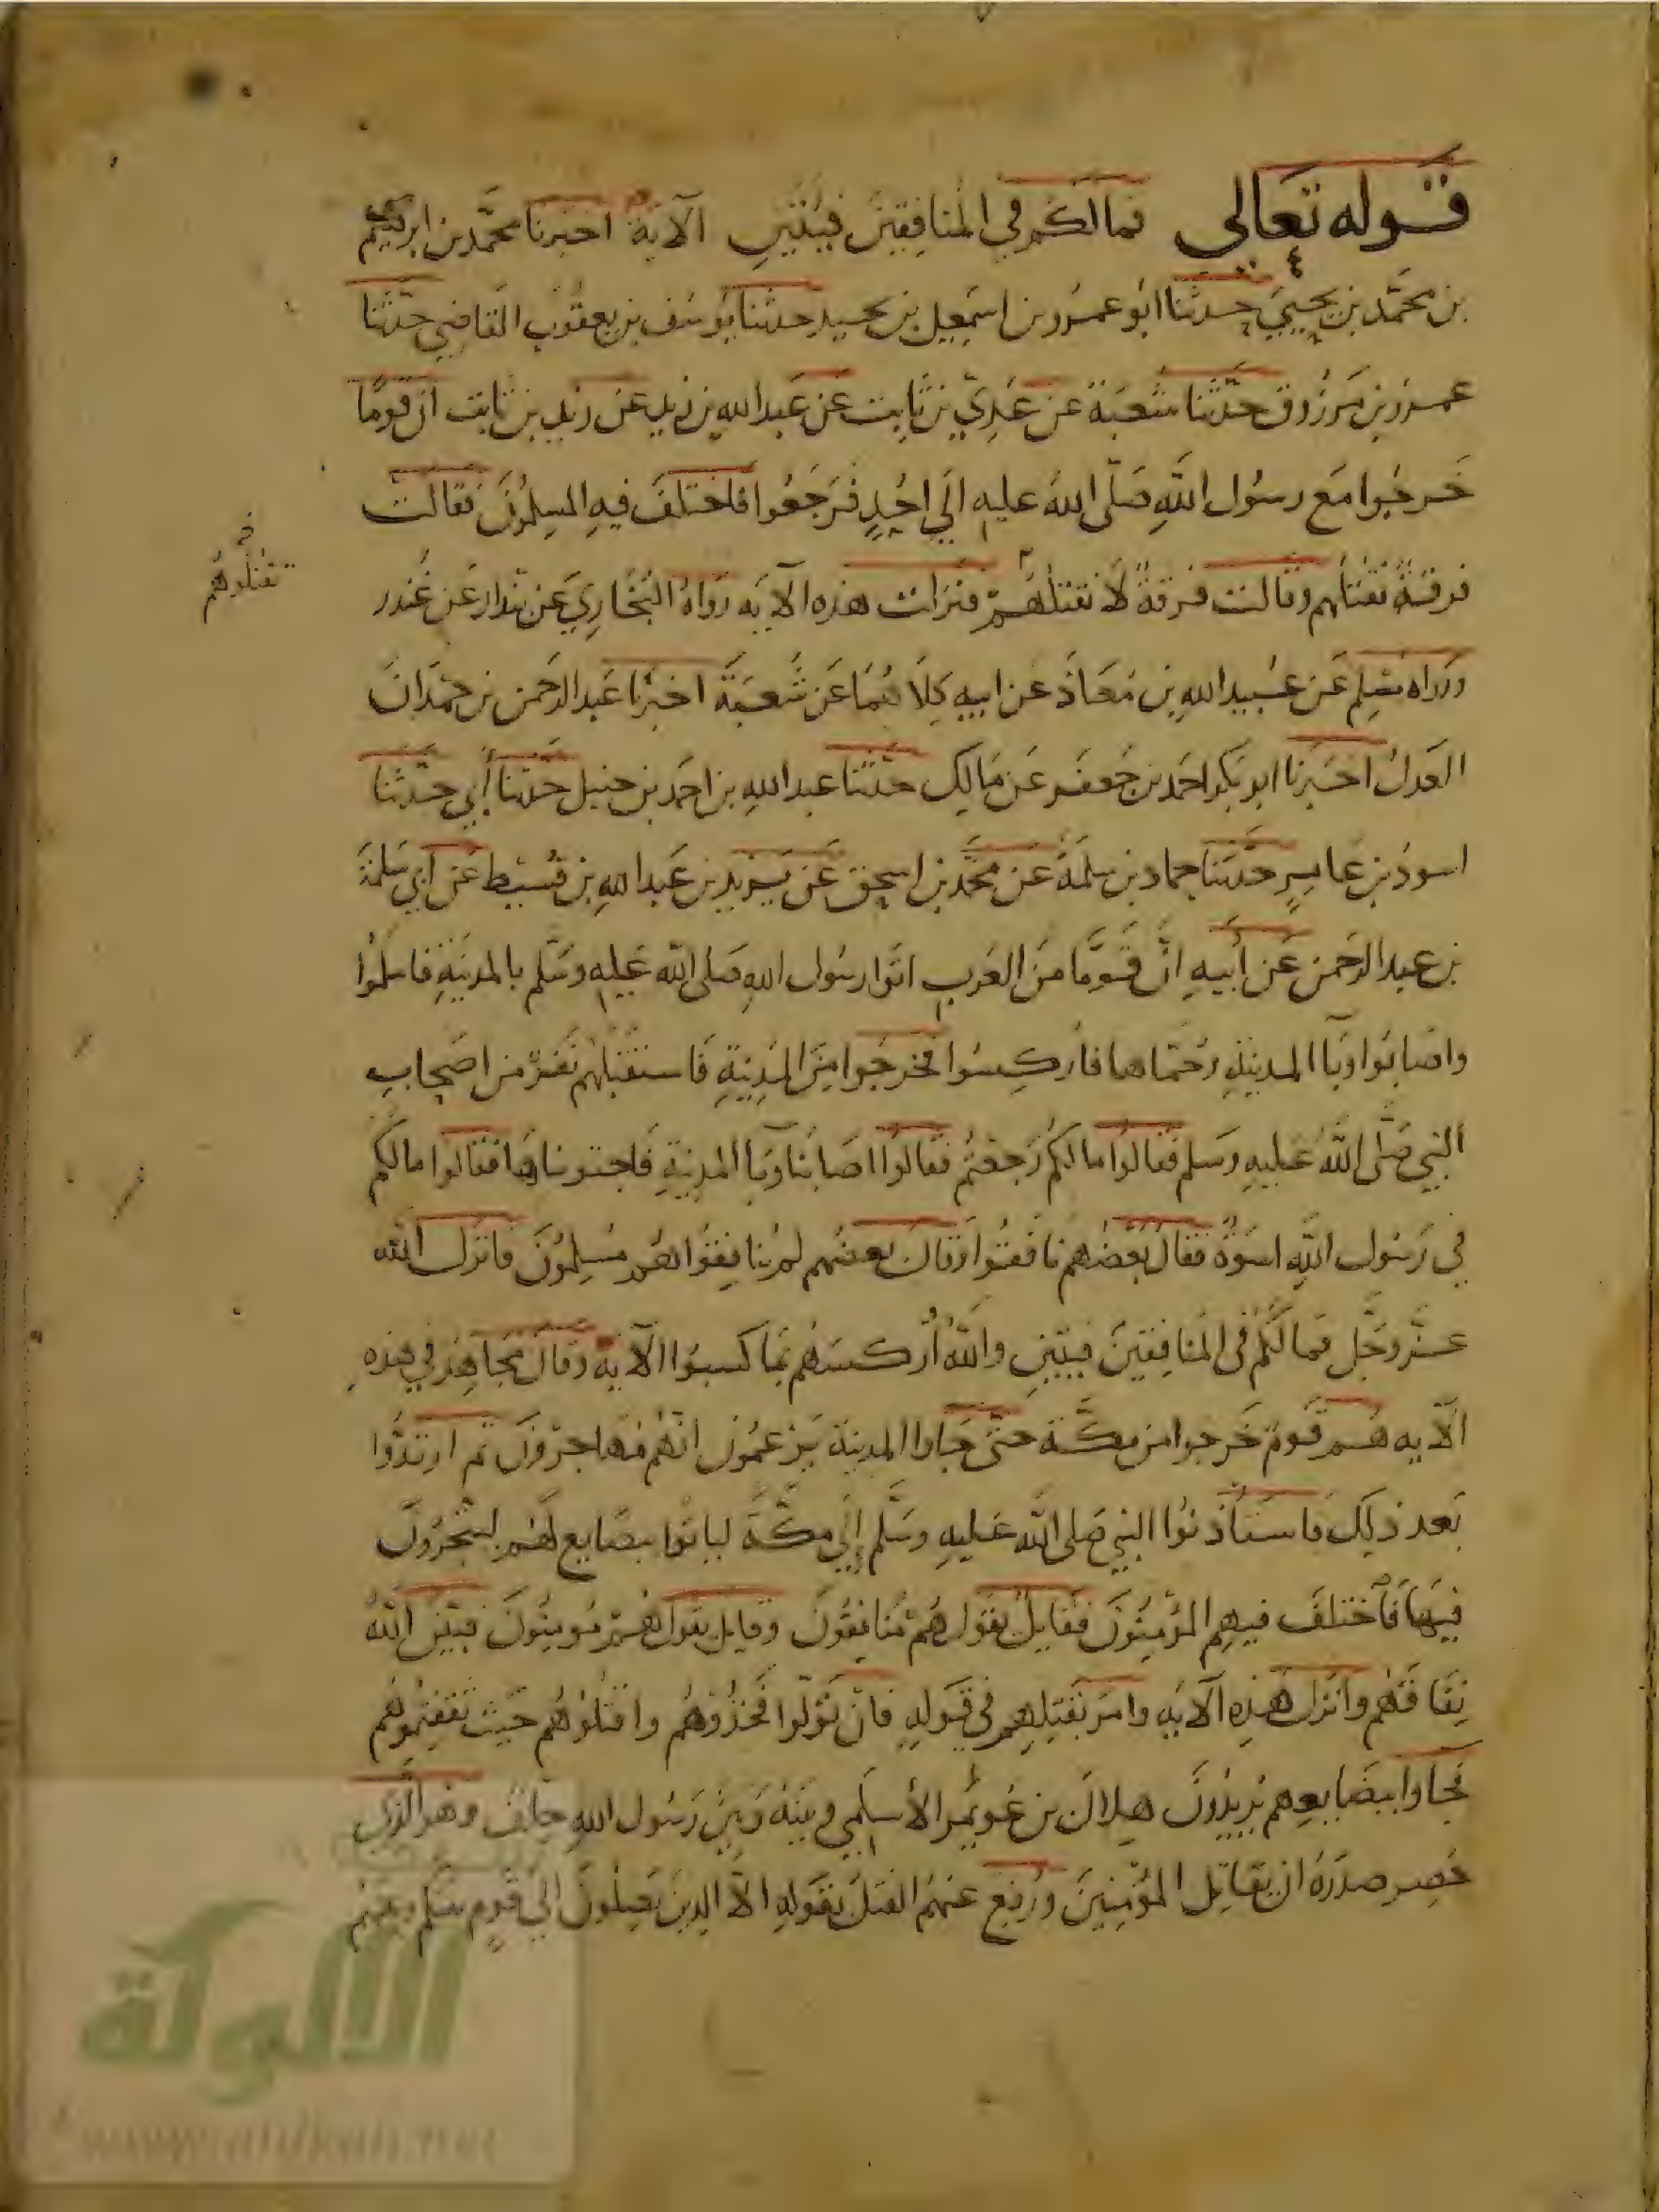 قوله تعالي فما لكم في المنافقين فيئتين الآية اخبرنا محمد بن ابرهيم
بن محمد بن يحيي حدثنا ابو عمرو بن اسمعيل بن نجيد حدثنا يوسف بن يعقوب القاضي حدثنا
عمرو بن مرزوق حدثنا شعبة عن عدي بن ثابت عن عبد الله بن زيد عن زيد بن ثابت ان قوما
خرجوا مع رسول الله صلى الله عليه الي احد فرجعوا فاختلف فيه المسلمون فقالت
فرقة نقتلهم وقالت فرقة لا نقتلهم فنزلت هذه الآيه رواه البخاري عن بندار عن غندر
تقتلوهم
ورواه مسلم عن عبيد الله بن معاذ عن ابيه كلاهما عن شعبة اخبرنا عبد الرحمن بن حمدان
العدل اخبرنا ابو بكر احمد بن جعفر عن مالك حدثنا عبد الله بن احمد بن حنبل حدثنا أبي حدثنا
اسود بن عامر حدثنا حماد بن سلمة عن محمد بن اسحق عن يزيد بن عبد الله بن قسيط عن ابي سلمة
بن عبد الرحمن عن أبيه ان قوما من العرب اتوا رسول الله صلى الله عليه وسلم بالمدينة فاسلموا
واصابوا وبا المدينة وحماها فاركسوا فخرجوا من المدينة فاستقبلهم نفر من اصحاب
النبي صلى الله عليه وسلم فقالوا ما لكم رجعتم فقالوا اصابنا وبا المدينة فاجتويناها فقالوا ما لكم
في رسول الله اسوة فقال بعضهم نافقوا وقال بعضهم لم ينافقوا هم مسلمون فانزل الله
عز وجل فما لكم في المنافقين فيتين والله أركسهم بما كسبوا الآيه وقال مجاهد في هذه
الآيه هم قوم خرجوا من مكة حتى جاوا المدينة يزعمون انهم مهاجرون ثم ارتدوا
بعد ذلك فاستأذنوا النبي صلى الله عليه وسلم إلي مكة لياتوا ببضايع لهم ليتجرون
فيها فاختلف فيهم المؤمنون فقايل يقول هم منافقون وقايل يقول هم مومنون فبين الله
نفاقهم وانزل هذه الآيه وامر بقتلهم في قوله فان تولوا فخذوهم واقتلوهم حيث ثقفتموهم
فجاوا ببضايعهم يريدون هلال بن عويمر الأسلمي وبينه وبين رسول الله حلف وهو الذي
حصر صدره ان يقاتل المؤمنين ورفع عنهم القتل بقوله الا الذين يصلون الي قوم بينكم وبينهم
الألوكة
www.alukah.net